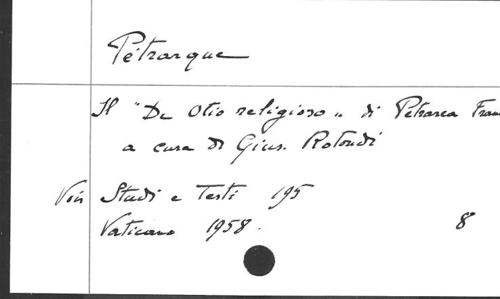 Pétrarque
Il "De Otio religioso" di Petrarca Fran
a cura di Gius. Rotondi
Voir Studi e Testi 195
Vaticano 1958.
8°